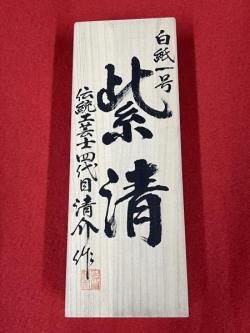 白紙一号
紫清
伝統工芸士四代目清介作